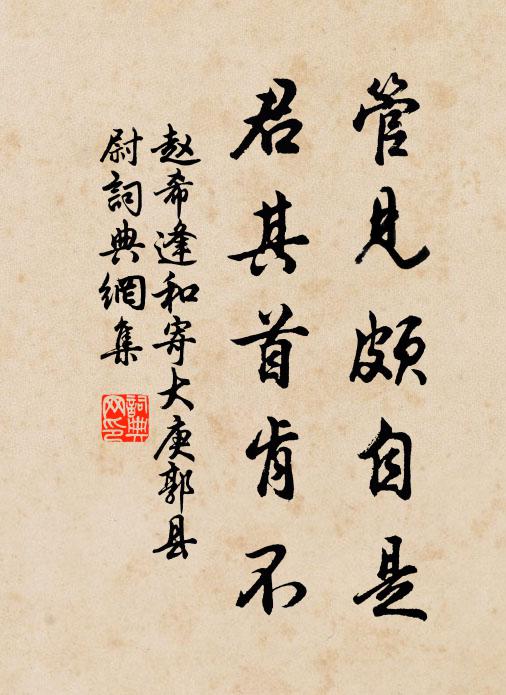 管见颇自是
君其首肯不
赵希逢和寄大庾郭县
尉詞典網集
詞典
网印